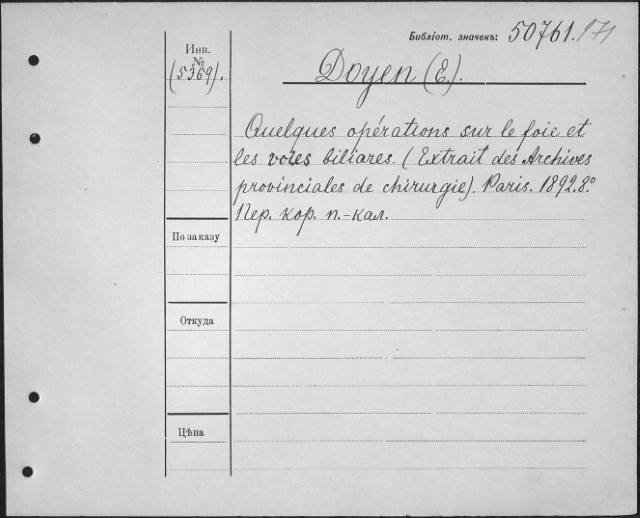 Библіот. значекъ: 50761.171
Инв. №
(5369).
Doyen (E).
Quelques opérations sur le foie et
les voies biliares. (Extrait des Archives
provinciales de chirurgie). Paris. 1892.8.º
Пер. кор. п.-кал.
По заказу
Откуда
Цѣна